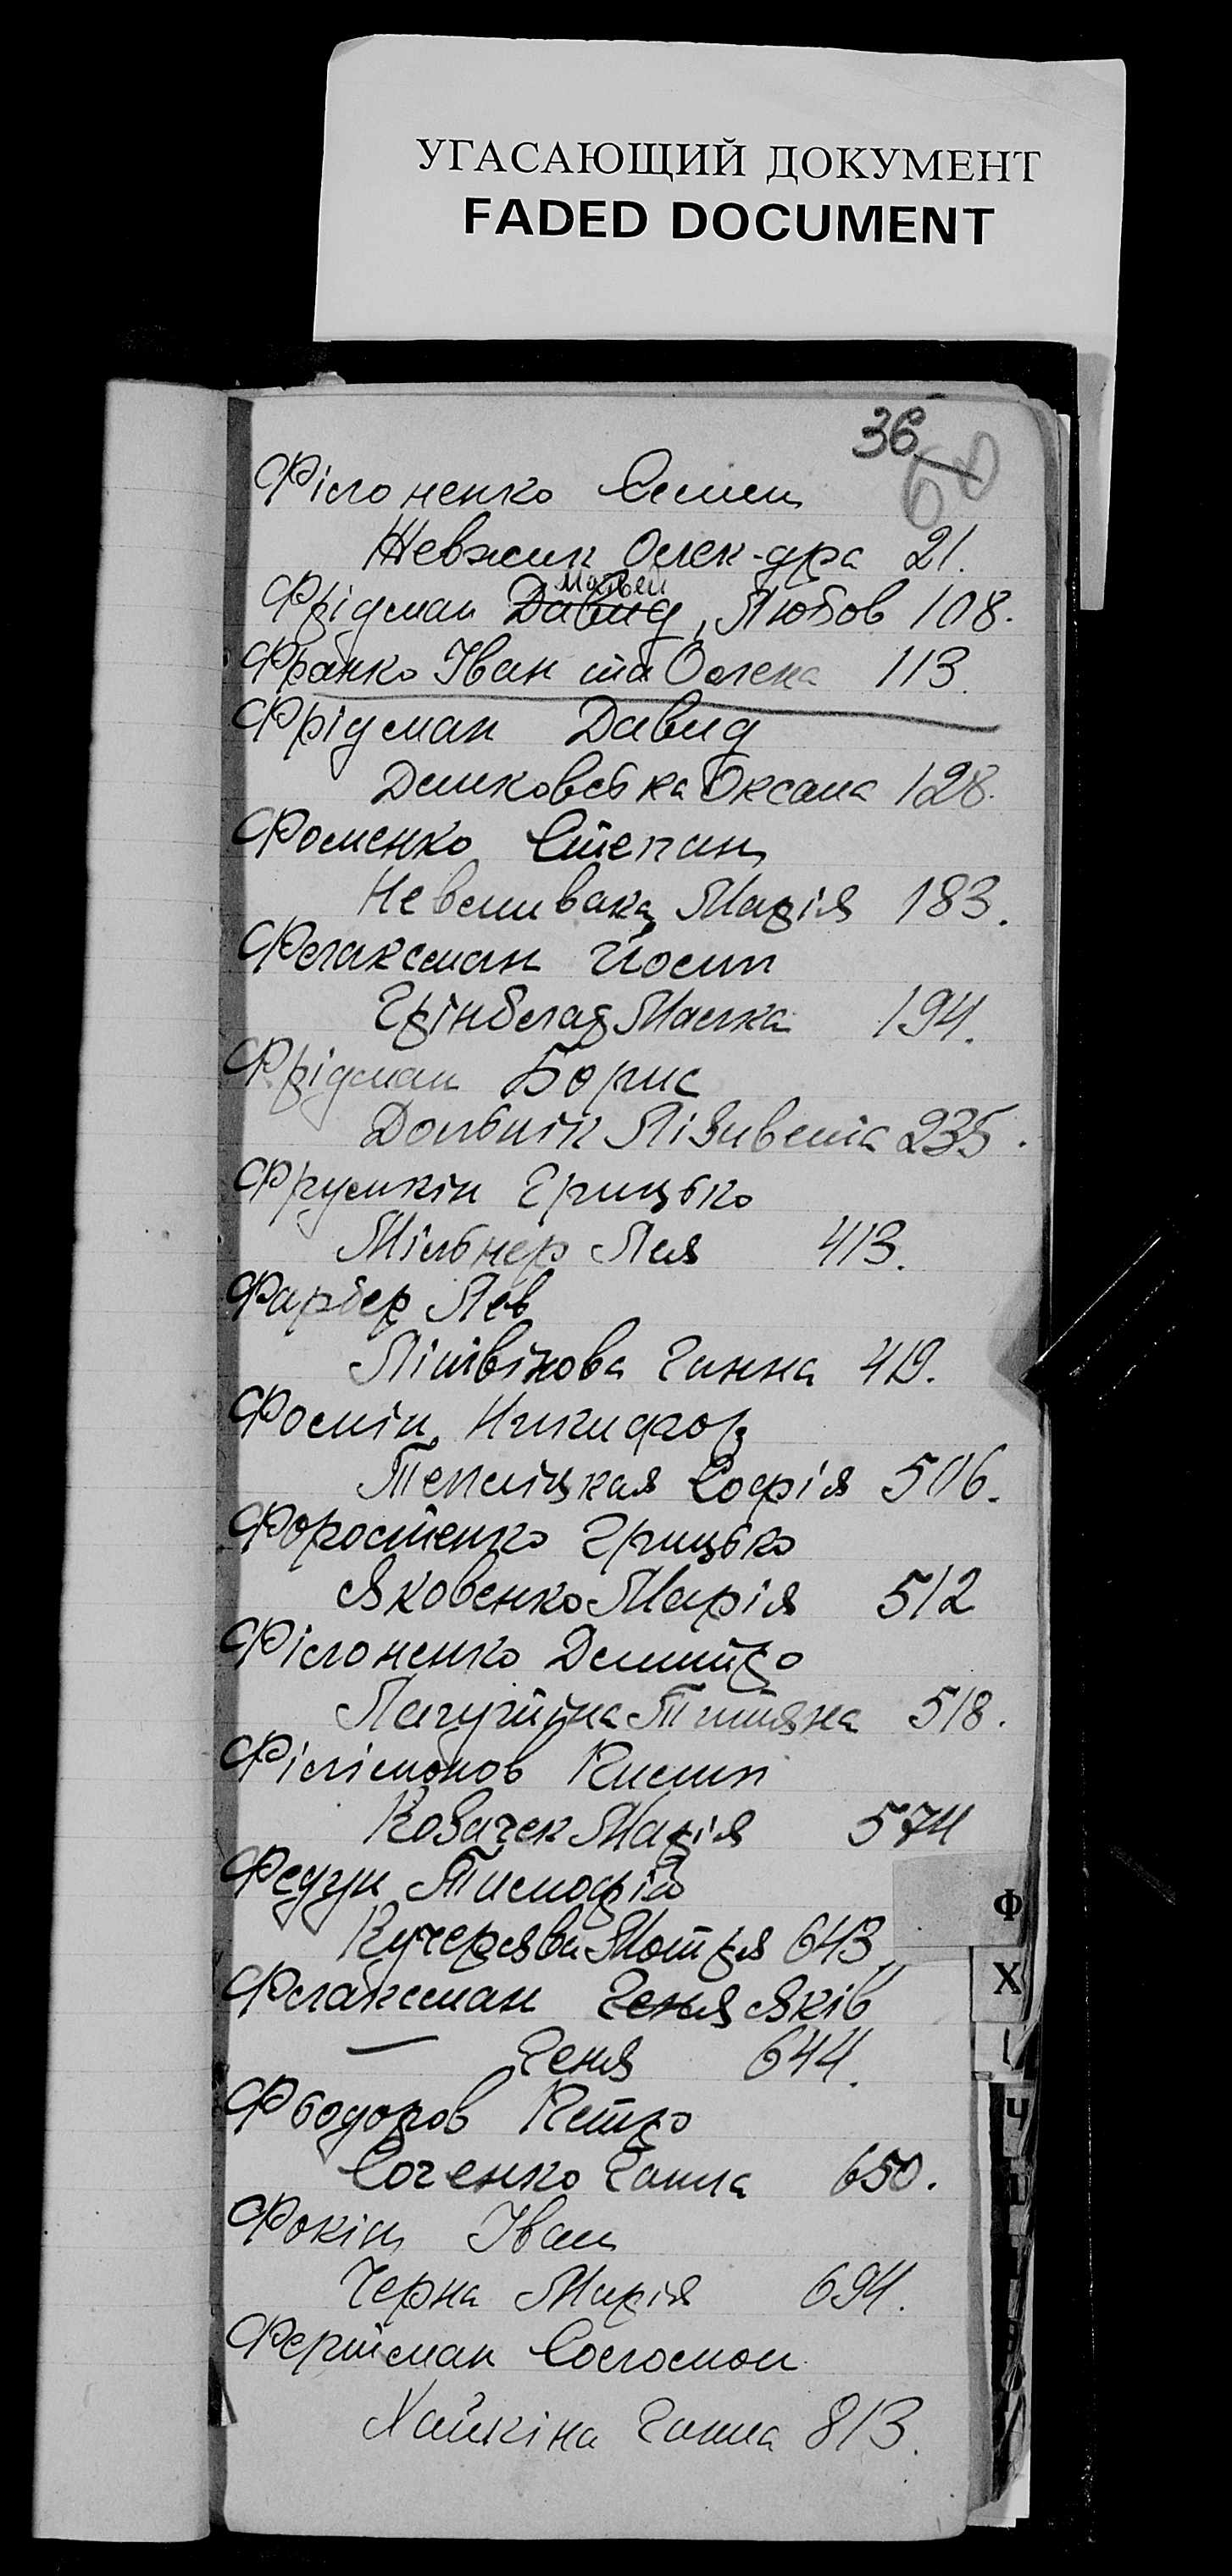 УГАСАЮЩИЙ ДОКУМЕНТ
FADED DOCUMENT
36
60
Філоненко Семен
Невжик Олек-дра 21.
Матвей
Фрідман Давид, Любов 108.
Франко Іван та Олена 113
Фрідман Давид
Демковська Оксана 128.
Фоменко Степан
Невмивака Марія 183.
Флаксман Йосип
Грінблад Малка 194.
Фрідман Борис
Долбнік Лізавета 235.
Фрумкін Грицько
Мільнер Лея 413.
Фарбер Лев
Літвінова Ганна 419.
Фомін Никифор
Теплицкая Софія 506.
Форостенко Грицько
Яковенко Марія 512
Філоненко Демитро
Лагутіна Тетяна 518.
Філімонов Пилип
Козачек Марія 574
Федчун Тимофій
Кучерява Мотря 643
Флаксман Геня Яків
— Геня 644.
Фьодоров Петро
Соченко Ганна 650.
Фокін Іван
Черна Марія 694.
Фертман Соломон
Хайкіна Ганна 813.
Ф
Х
Ч